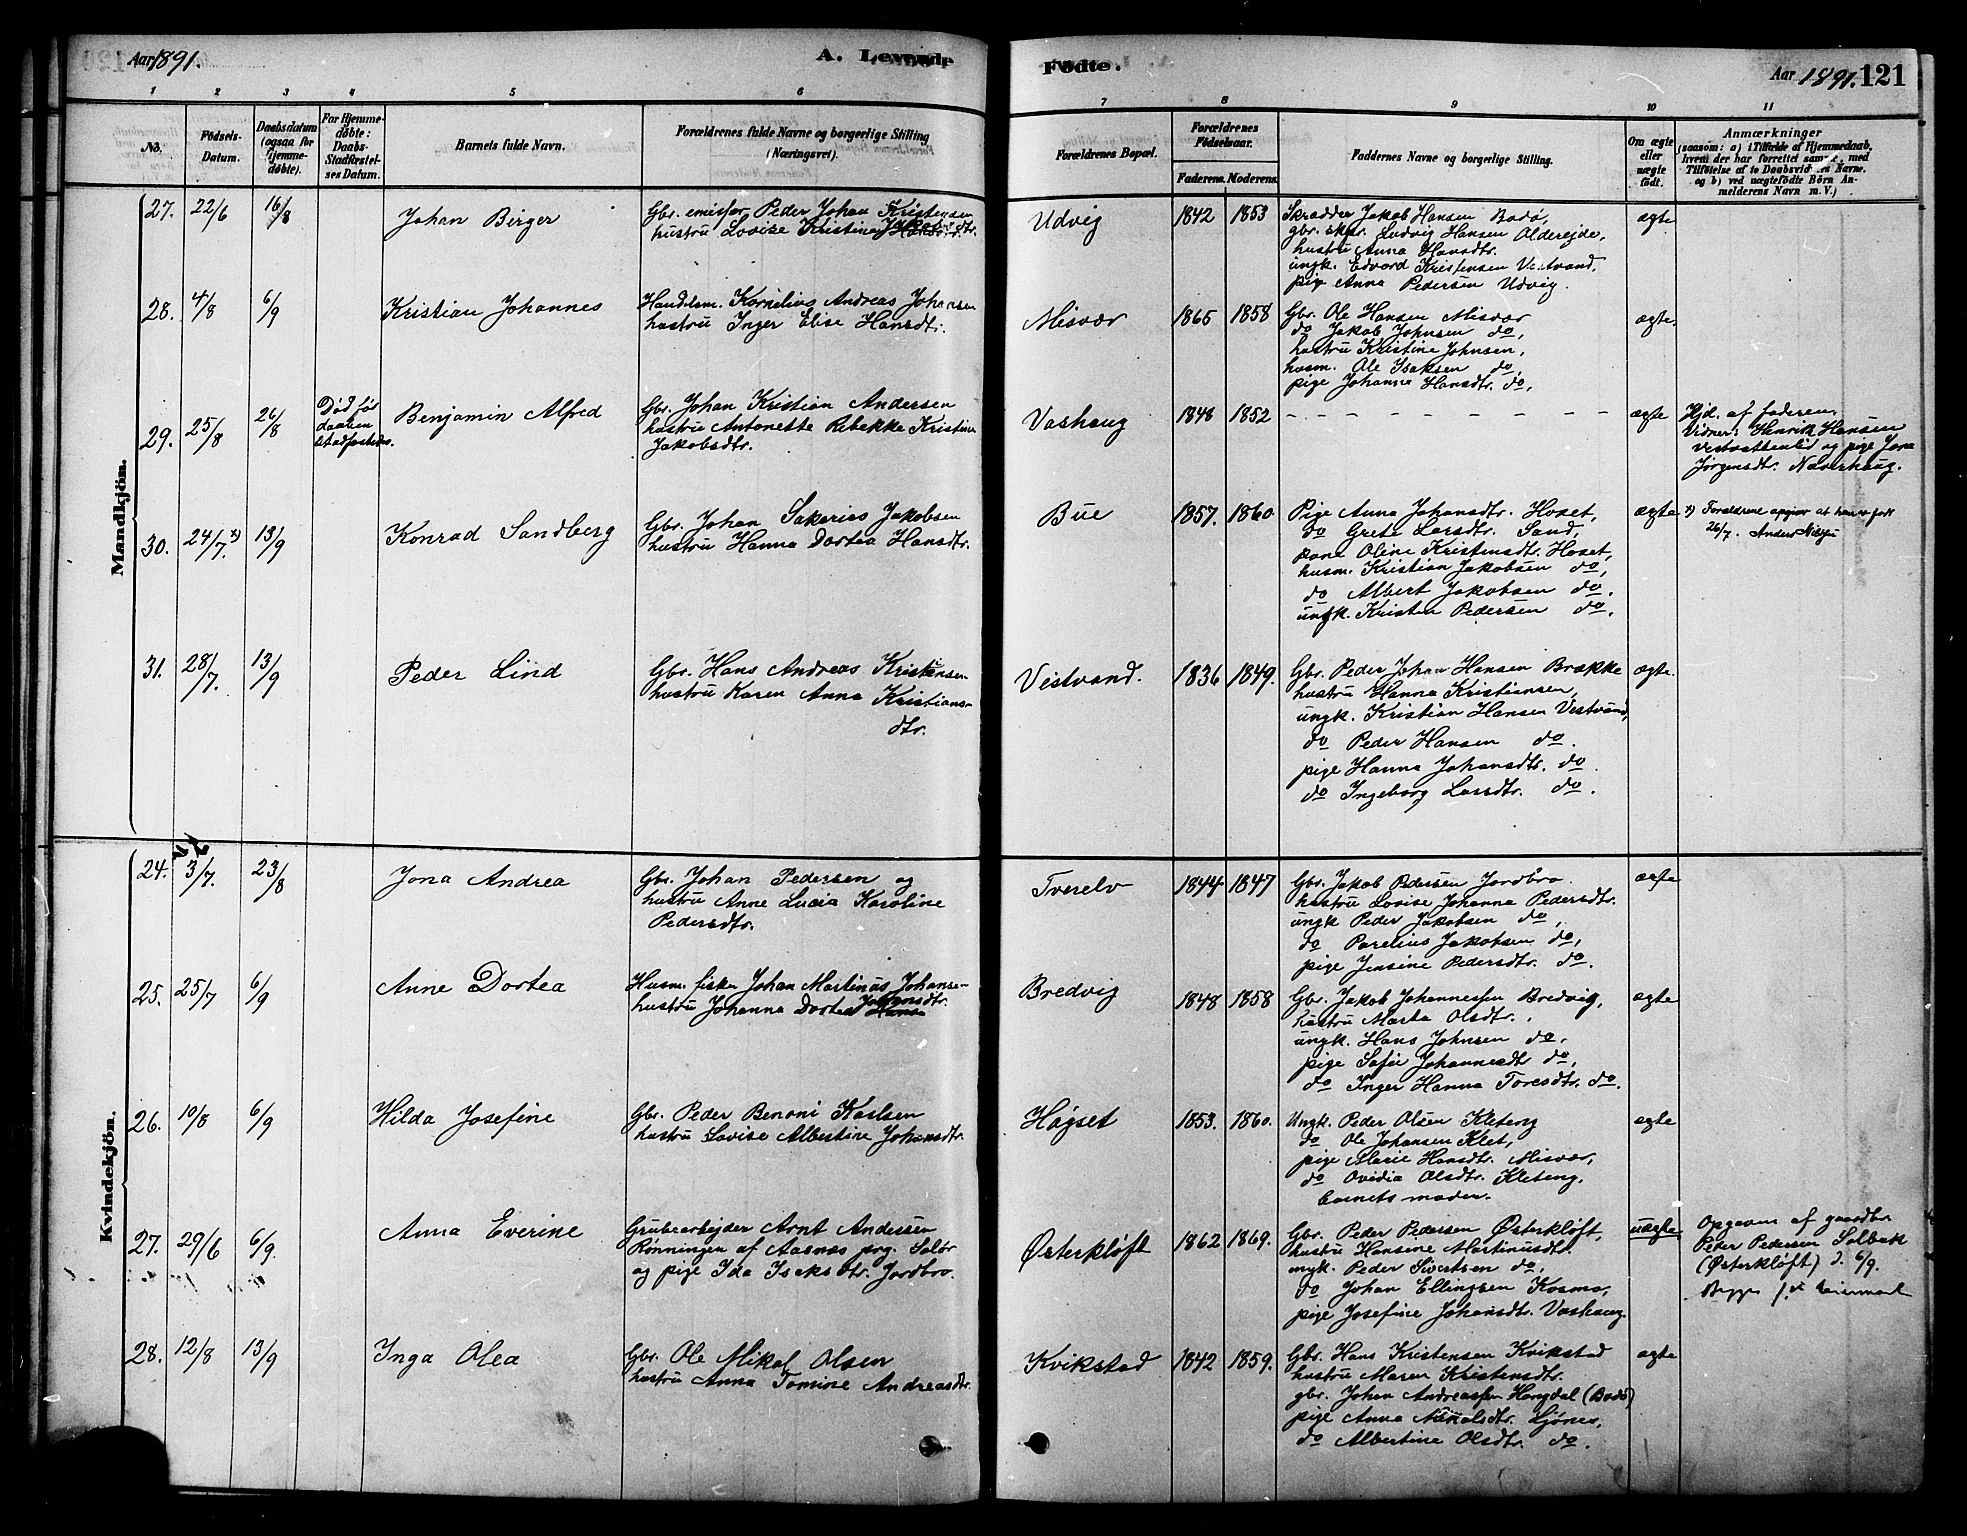 Aar 1891.
A. Levende
Fødte.
Aar 1891. 121
1 2 3 4 5 6
7 8 9 10 11
No.
Fødsels-Datum.
Daabsdatum (ogsaa for Hjemmedøbte).
For Hjemmedøbte: Daabs-Stadfæstelses Datum.
Barnets fulde Navn.
Forældrenes fulde Navne og borgerlige Stilling (Næringsvei).
Forældrenes Bopæl.
Forældrenes Fødselsaar.
Faderens. Moderens.
Faddernes Navne og borgerlige Stilling.
Om ægte eller uægte født.
Anmærkninger
(saasom: a) i Tilfælde af Hjemmedaab,
hvem der har forrettet samme, med
Tilføielse af to Daabsvidners Navne,
og b) ved uægtefødte Børn Anmelderens Navn m. V.)
Mandkjön.
27. 22/6 16/8 Johan Birger
Gbr. emissær Peder Johan Kristensen
hustru Lovise Kristine Jakobsdtr.
Udvig 1842 1853
Skrædder Jakob Hansen Bodø,
gbr. skpr. Ludvig Hansen Aldereide,
hustru Anna Hansdtr.
ungk. Edvard Kristensen Vestvand,
pige Anna Pedersen Udvig.
ægte
28. 4/8 6/9 Kristian Johannes
Handelsm. Kornelius Andreas Johansen
hustru Inger Elise Hansdtr.
Misvær 1865 1858
Gbr. Ole Hansen Misvær
do Jakob Johnsen do,
hustru Kristine Johnsen,
husm. Ole Isaksen do,
pige Johanna Hansdtr. do,
ægte.
29. 25/8 26/8 Død før daaben stadfæstedes.
Benjamin Alfred
Gbr. Johan Kristian Andersen
hustru Antonette Rebekke Kristine
Jakobsdtr.
Vashaug 1848 1852 - - - - - - - -
ægte
Hjd. af faderen.
Vidner: Henrik Hansen
Vestvattenlid og pige Jona
Jørgensdtr. Naverhaug.
30. 24/7. x) 13/9 Konrad Sandberg
Gbr. Johan Sakarias Jakobsen
hustru Hanna Dortea Hansdtr.
Bue 1857. 1860
Pige Anna Johansdtr. Hoset,
do Grete Larsdtr. Sand,
kone Oline Kristensdtr. Hoset,
husm. Kristian Jakobsen do,
do Albert Jakobsen do.
ungk. Kristen Pedersen do.
ægte
x) Forældrene opgiver at han er født
26/7. Anders Nilsen
31. 28/7. 13/9 Peder Lind
Gbr. Hans Andreas Kristensen
hustru Karen Anna Kristians-
dtr.
Vestvand. 1836 1849.
Gbr. Peder Johan Hansen Brække
hustru Hanna Kristiansen,
ungk. Kristian Hansen Vestvand,
do Peder Hansen do.
pige Hanna Johansdtr. do.
do Ingeborg Larsdtr. do.
ægte.
Kvindekjön.
24. 3/7. 23/8 Jona Andrea
Gbr. Johan Pedersen og
hustru Anne Lucia Karoline
Pedersdtr.
Tverelv 1844 1847
Gbr. Jakob Pedersen Jordbro
hustru Lovise Johanna Pedersdtr.
ungk Peder Jakobsen do,
do Parelius Jakobsen do,
pige Jensine Pedersdtr. do.
ægte
25. 25/7 6/9 Anne Dortea
Husm. fisker Johan Martinus Johansen
hustru Johanna Dortea Johansdtr.
Bredvig 1848 1858
Gbr. Jakob Johannessen Bredvig,
hustru Marta Olsdtr.
ungk. Hans Johnsen do.
pige Sofie Johannesdtr do,
do Inger Hanna Toresdtr. do.
ægte
26. 10/8 6/9 Hilda Josefine
Gbr. Peder Benoni Karlsen
hustru Lovise Albertine Johansdtr.
Høgset 1853. 1860.
Ungk. Peder Olsen Kleteng
do Ole Johansen Klet,
pige Marie Hansdtr. Misvær,
do Ovidia Olsdtr. Kleteng,
barnets moder.
ægte
27. 29/6 6/9. Anna Everine
Grubearbejder Arnt Andersen
Rønningen af Aasnæs prg. Solør
og pige Ida Isaksdtr. Jordbro.
Østerkløft 1862 1869.
Gbr. Peder Pedersen Østerkløft,
hustru Hansine Martinusdtr.
ungk. Peder Sivertsen do,
do Johan Ellingsen Kosmo,
pige Josefine Johansdtr. Vashaug.
uægte
Opgaven af gaardbr.
Peder Pedersen Solbak
(Østerkløft) d. 6/9.
28. 12/8 13/9 Inga Olea
Gbr. Ole Mikal Olsen
hustru Anna Tomine Andreasdtr.
Kvikstad 1842 1859.
Gbr. Hans Kristensen Kvikstad
hustru Maren Kristensdtr.
gbr. Johan Andreassen Hongdal (Bodø)
pige Anna Nikolsdtr. Ljønes,
do Albertine Olsdtr. do.
ægte